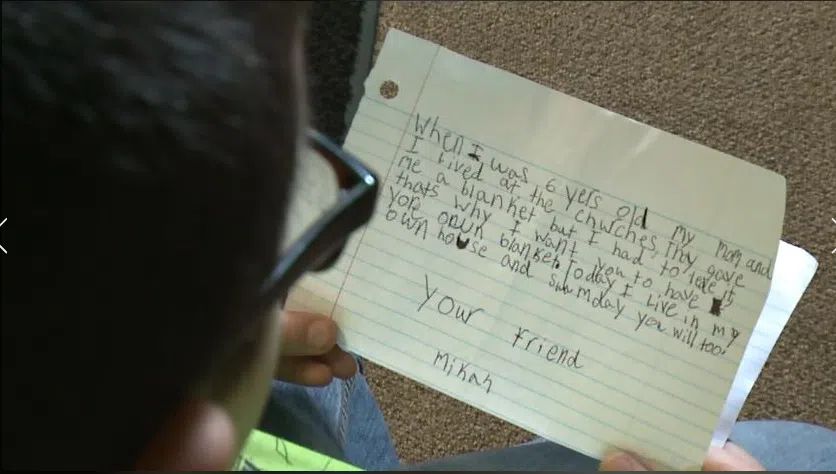 When I was 6 yers old my mom and
I lived at the churches, they gave
me a blanket but I had to leve it
thats why I want you to have
yore onwn blanket. Today I Live in my
own house and sumday you will too!
Your Friend
Mikah